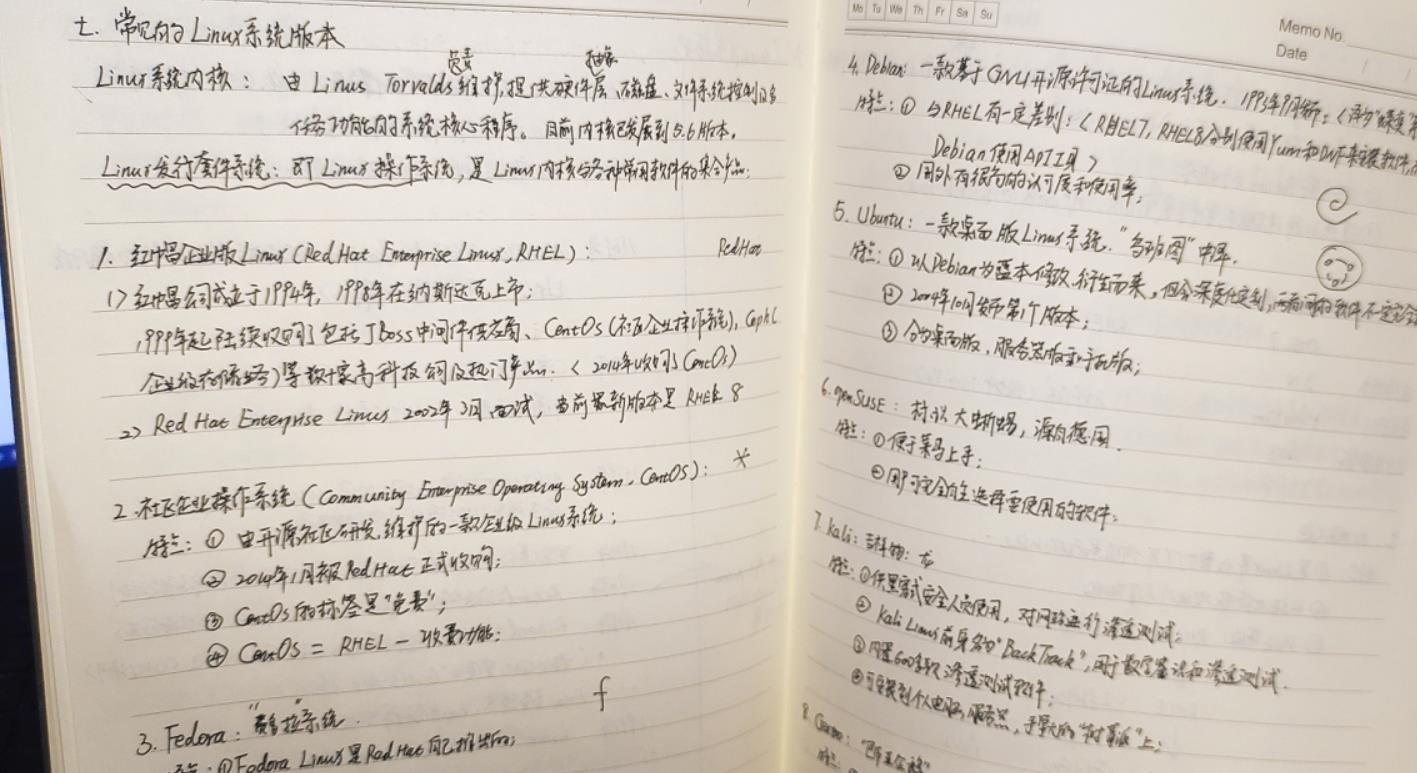 七. 常见的Linux系统版本
负责 抽象
Linux系统内核： 由 Linus Torvalds维护,提供硬件层、磁盘、文件系统控制及多
任务功能的系统核心程序。目前内核已发展到5.6版本。
Linux发行套件系统：即Linux操作系统，是Linux内核与各种常用软件的集合产品；
1. 红帽企业版Linux（Red Hat Enterprise Linux, RHEL）： RedHat
1) 红帽公司成立于1994年，1998年在纳斯达克上市；
1999年起陆续收购了包括JBoss中间件供应商、CentOS（社区企业操作系统），Ceph（
企业级存储业务）等数十家高科技公司及热门产品.〈2014年收购了CentOS〉
2) Red Hat Enterprise Linux 2002年3月面试，当前最新版本是 RHEL 8
2. 社区企业操作系统（Community Enterprise Operating System, CentOS）：
特点：① 由开源社区研发,维护的一款企业级Linux系统；
② 2014年1月被Red Hat正式收购；
③ CentOS的标签是"免费"；
④ CentOS = RHEL - 收费功能；
f
3. Fedora："费多拉"系统.
特点：①Fedora Linux是Red Hat自己推出的；
Mo Tu We Th Fr Sa Su
Memo No.
Date
4. Debian：一款基于GNU开源许可证的Linux系统. 1993年9月
特点：① 与RHEL有一定差别：〈RHEL7, RHEL8分别使用Yum和Dnf来安装软件,
Debian使用API工具〉
② 国外有很高的认可度和使用率；
5. Ubuntu：一款桌面版Linux系统."乌班图"中译.
特点：① 以Debian为蓝本修改,衍生而来，但会深度化定制，两者间的软件不一定完全
② 2004年10月发布第1个版本；
③ 分为桌面版，服务器版和手机版；
6. openSUSE：标识大蜥蜴，源自德国.
特点：① 便于菜鸟上手；
② 用户可完全自主选择要使用的软件；
7. Kali：吉祥物：龙
特点：①供黑客或安全人员使用，对网站进行渗透测试；
② Kali Linux前身名为"BackTrack",用于数字鉴识和渗透测试.
③ 内置600多款渗透测试软件；
④ 可安装到个人电脑,服务器，手掌大的"树莓派"上；
8.
特点：